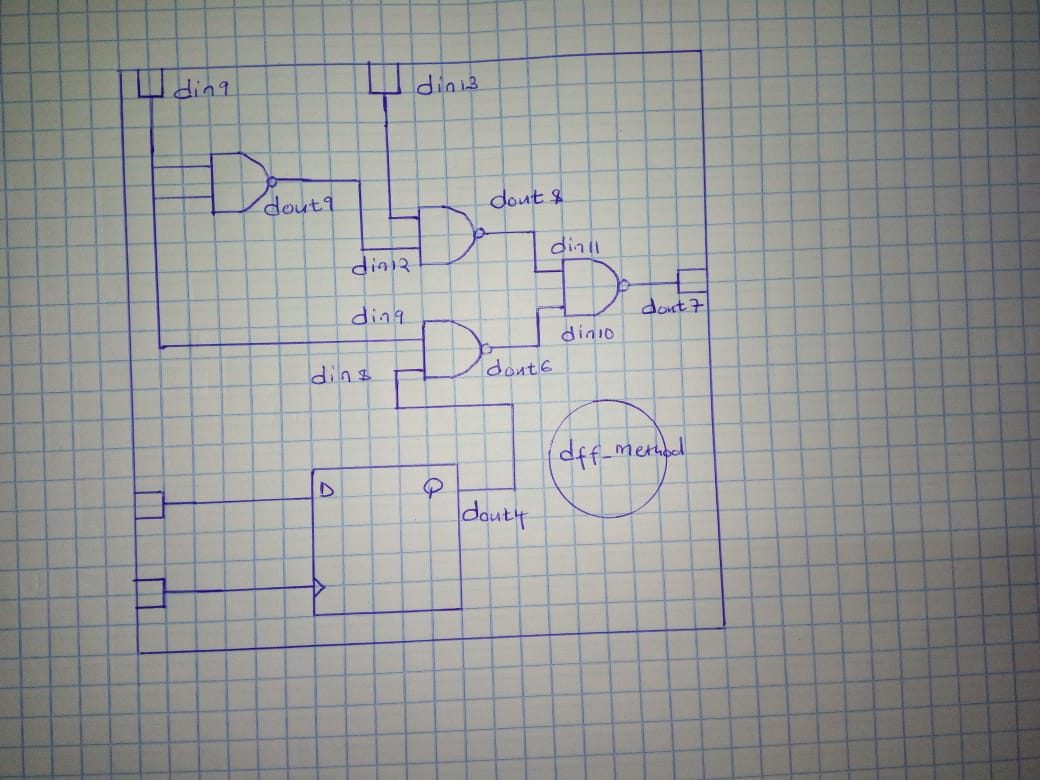 din9
din13
dout9
dout8
din12
din11
din9
dout7
din10
din8
dout6
dff-method
D
Q
dout4